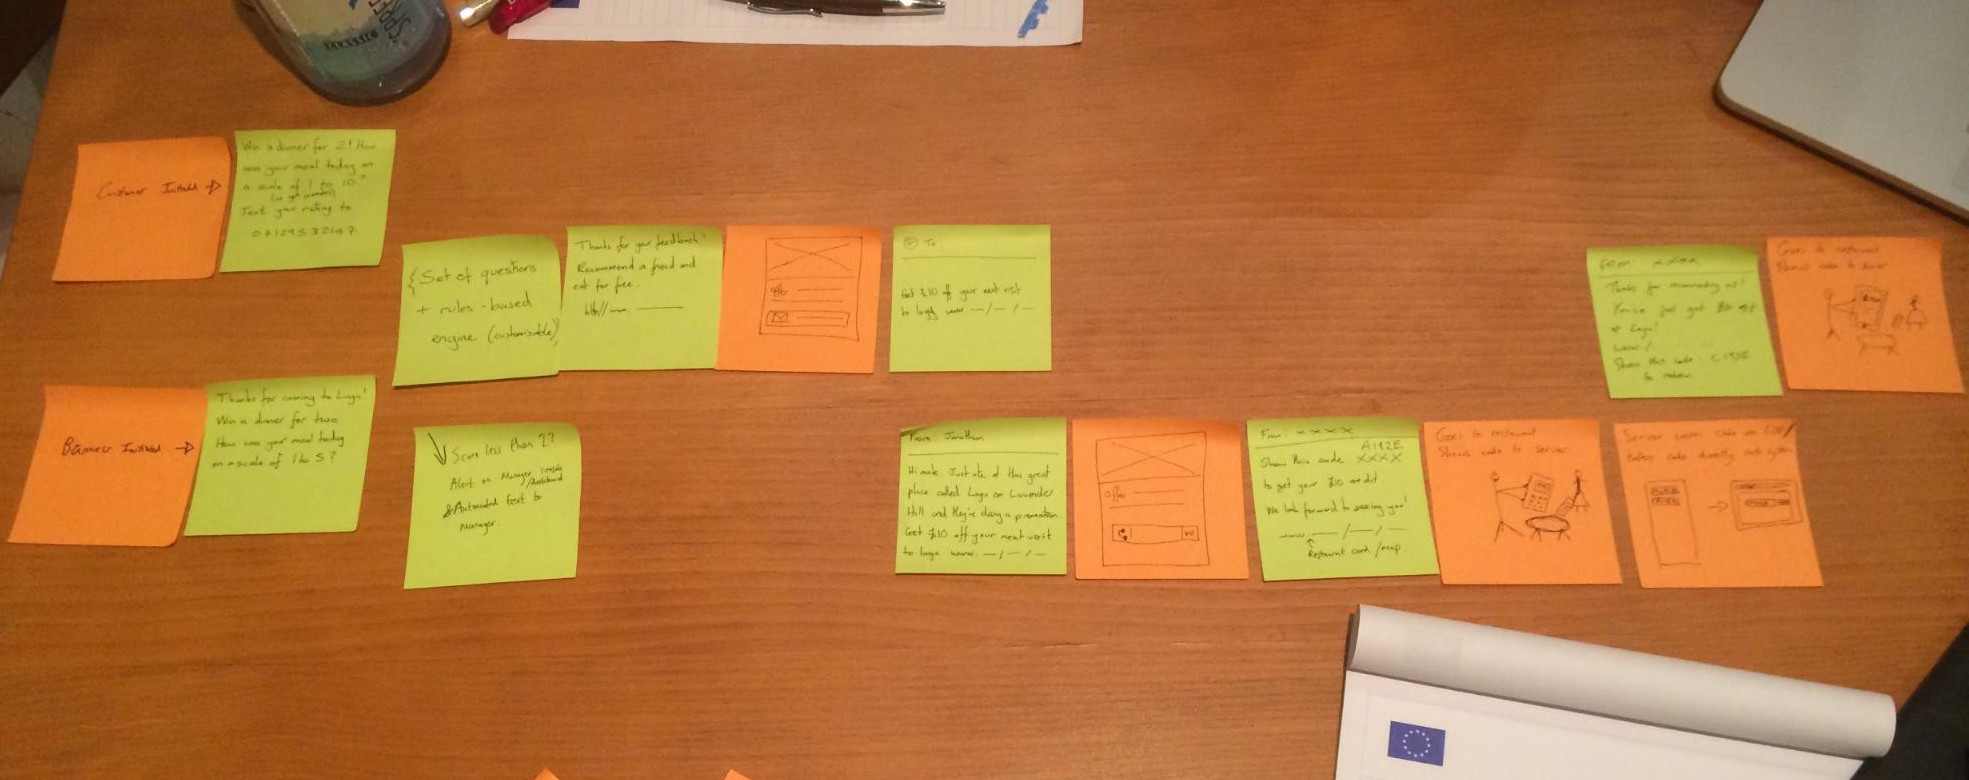 CLASSIC
Customer Initiated →
Win a dinner for 2! How
was your meal today on
a scale of 1 to 10?
Text your rating to
{Set of questions
+ rules-based
engine (customisable)}
Thanks for your feedback!
Recommend a friend and
eat for free.
http//
offer
To
Get $10 off your next visit
to Lagu www. —/—/—
From: xxxx
Thanks for recommending us!
You've just got $10
at Lagu!
www./
Show this code:
to redeem
Goes to restaurant
Shows code to server
Initiated →
Thanks for coming to Lagu!
Win a dinner for two
How was your meal today
on a scale of 1 to 5?
↓ Score less than 2?
Alert on Manager
/dashboard
Automated text to
Manager.
From Jonathan
Hi mate. Just ate at this great
place called Lagu on Lavender
Hill and they're doing a promotion
Get $10 off your next visit
to Lagu. www. —/—/—
Offer
From: xxxx
A192E
Show this code XXXX
to get your $10 credit
We look forward to seeing you!
www. —/—/—
Restaurant card/map
Goes to restaurant
Shows code to server
Server code on
Enters code directly into system